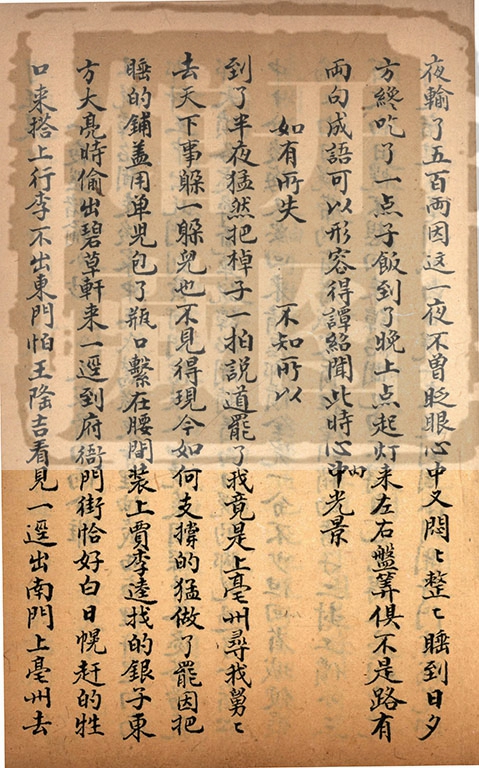 夜輸了五百両因这一夜不曾眨眼心中又悶〻整〻睡到日夕
方終吃了一点子飯到了晚上点起灯来左右盤筭俱不是路有
両句成語可以形容得譚紹聞此時心中光景
如有所失 不知所以
到了半夜猛然把棹子一拍説道罷了我竟是上亳州尋我舅〻
去天下事躱一躱兒也不見得現今如何支撑的猛做了罷因把
睡的鋪盖用单児包了瓶口繫在腰間装上賈李逵找的銀子東
方大亮時偷出碧草軒来一逕到府衙門街恰好白日幌赶的牲
口来搭上行李不出東門怕王隆吉看見一逕出南門上亳州去